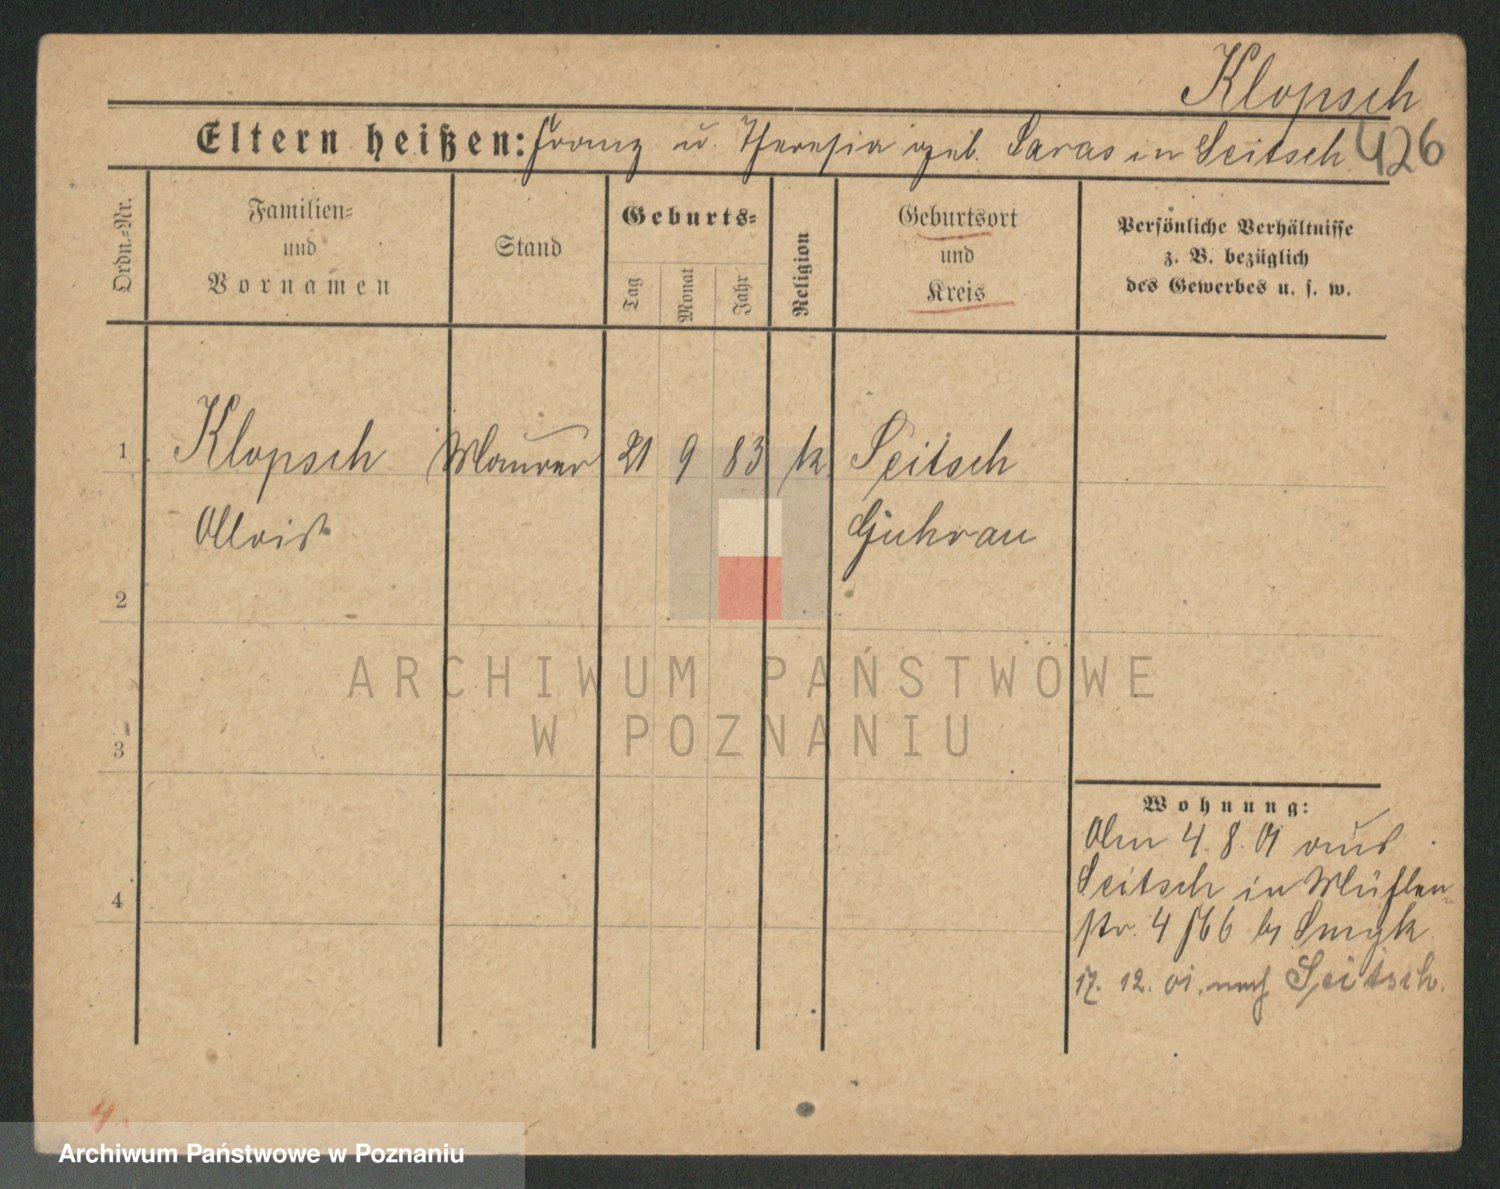 Klopsch
Eltern heißen: Franz u. Theresia geb. Saras in Seitsch 426
Ordn.-Nr.
Familien-
und
Vornamen
Stand
Geburts-
Tag
Monat
Jahr
Religion
Geburtsort
und
Kreis
Persönliche Verhältnisse
z. B. bezüglich
des Gewerbes u. s. w.
1 Klopsch Maurer 21 9 83 k. Seitsch
Alois Guhrau
2
3
4
ARCHIWUM PAŃSTWOWE
W POZNANIU
Wohnung:
Am 4. 8. 01 aus
Seitsch in Mühlen-
str. 4/66 b/ Smyk
17. 12. 01. nach Seitsch.
4.
Archiwum Państwowe w Poznaniu